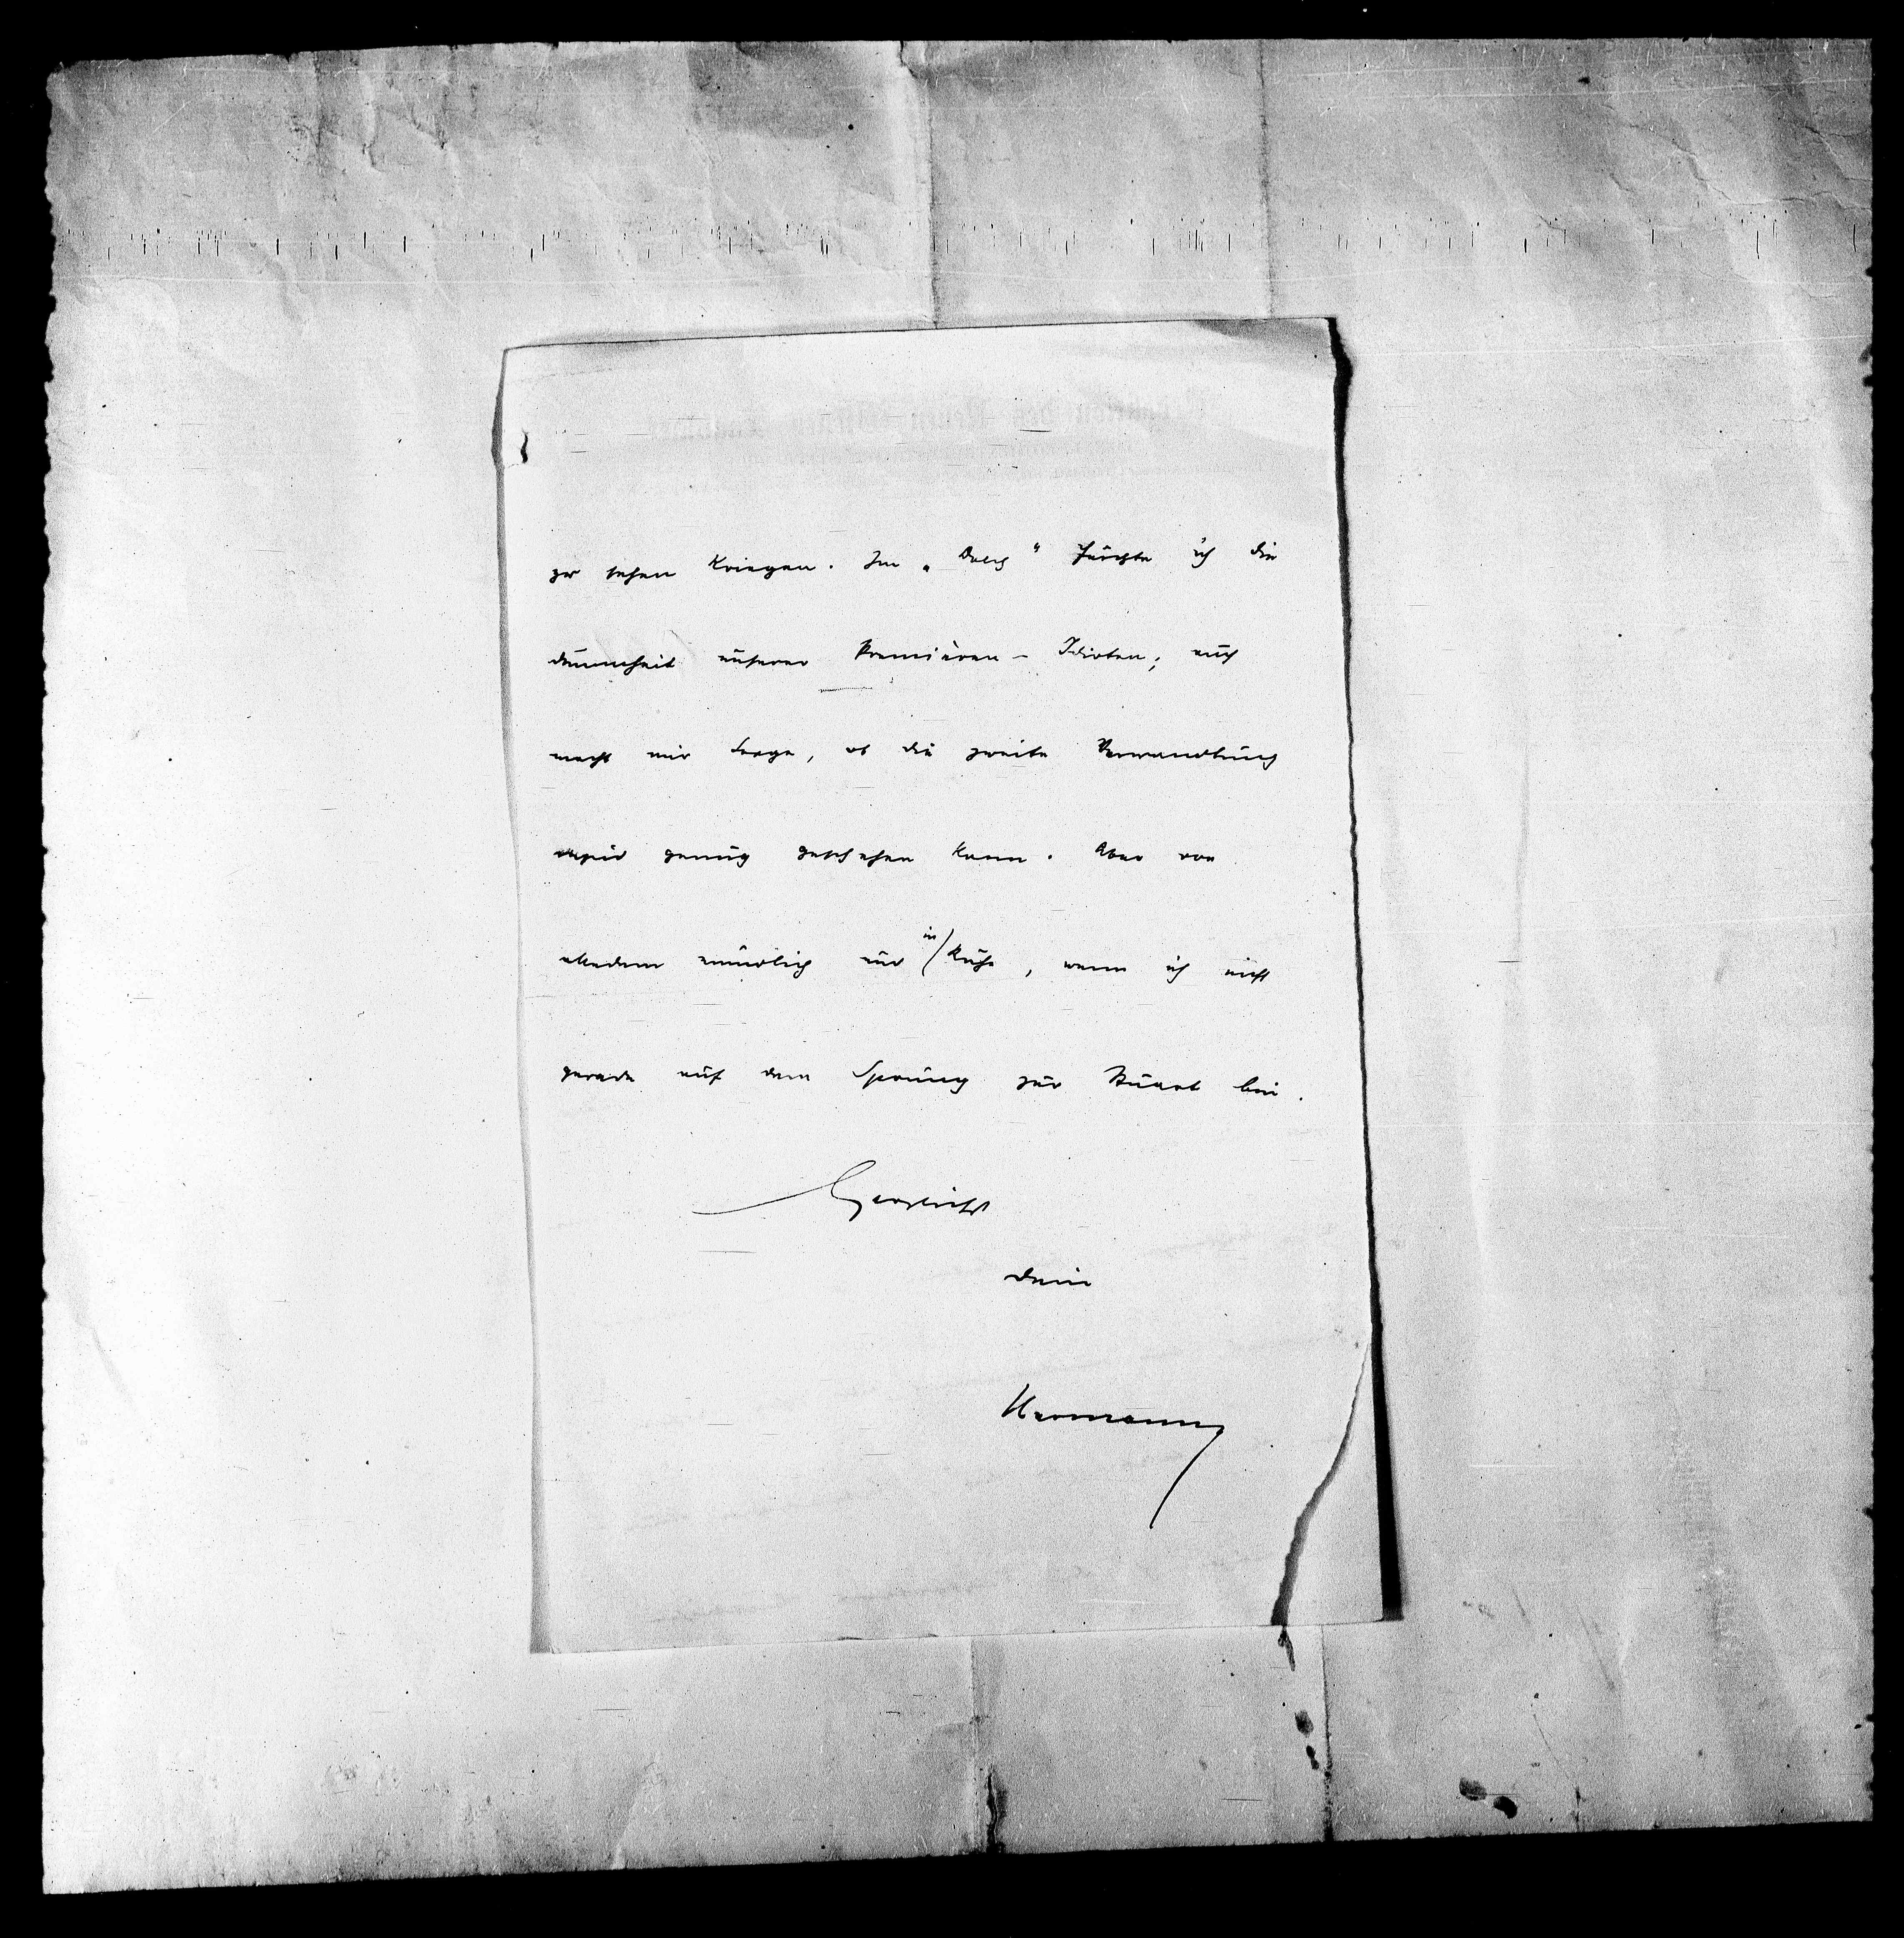 zu sehen kriegen. Im „Dolch“ fürchte ich die
Dummheit unserer Premièren-Idioten; auch
macht mir Sorge, ob die zweite Verwandlung
rapid genug geschehen kann. Aber von
alledem mündlich und in Ruhe, wenn ich nicht
gerade auf dem Sprung zur Stuart bin.
Herzlichst
Dein
Hermann